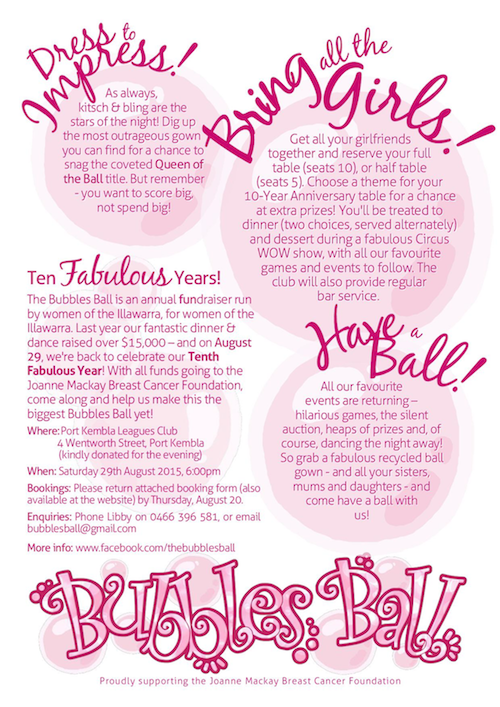 Dress to
Impress!
As always,
kitsch & bling are the
stars of the night! Dig up
the most outrageous gown
you can find for a chance to
snag the coveted Queen of
the Ball title. But remember
- you want to score big,
not spend big!
Bring all the
Girls!
Get all your girlfriends
together and reserve your full
table (seats 10), or half table
(seats 5). Choose a theme for your
10-Year Anniversary table for a chance
at extra prizes! You'll be treated to
dinner (two choices, served alternately)
and dessert during a fabulous Circus
WOW show, with all our favourite
games and events to follow. The
club will also provide regular
bar service.
Ten Fabulous Years!
The Bubbles Ball is an annual fundraiser run
by women of the Illawarra, for women of the
Illawarra. Last year our fantastic dinner &
dance raised over $15,000 – and on August
29, we're back to celebrate our Tenth
Fabulous Year! With all funds going to the
Joanne Mackay Breast Cancer Foundation,
come along and help us make this the
biggest Bubbles Ball yet!
Where: Port Kembla Leagues Club
4 Wentworth Street, Port Kembla
(kindly donated for the evening)
When: Saturday 29th August 2015, 6:00pm
Bookings: Please return attached booking form (also
available at the website) by Thursday, August 20.
Enquiries: Phone Libby on 0466 396 581, or email
bubblesball@gmail.com
More info: www.facebook.com/thebubblesball
Have a
Ball!
All our favourite
events are returning –
hilarious games, the silent
auction, heaps of prizes and, of
course, dancing the night away!
So grab a fabulous recycled ball
gown - and all your sisters,
mums and daughters - and
come have a ball with
us!
Bubbles Ball
Proudly supporting the Joanne Mackay Breast Cancer Foundation